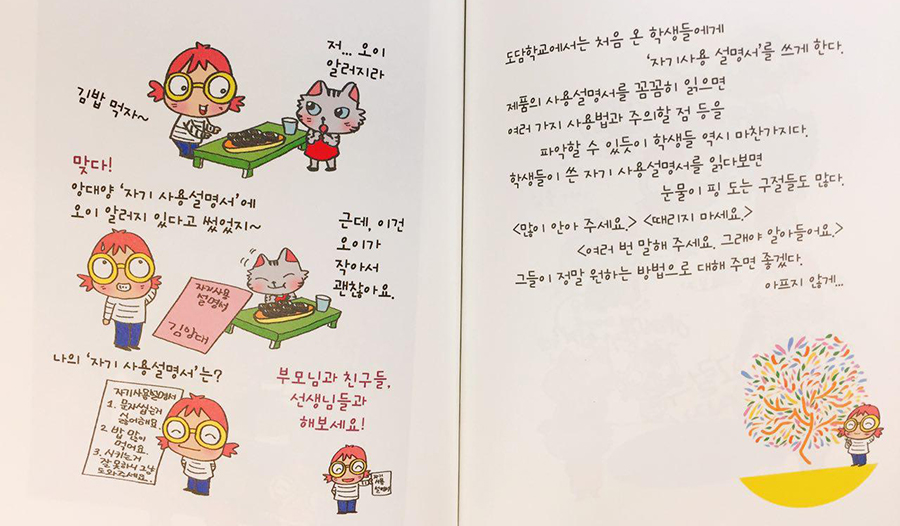 저... 오이
알러지라
김밥 먹자~
맞다!
앙대양 '자기 사용설명서'에
오이 알러지 있다고 썼었지~
근데, 이건
오이가
작아서
괜찮아요.
자기사용
설명서
김앙대
나의 '자기 사용설명서'는?
자기사용설명서
1. 문자씹는거
싫어해요
2. 밥 많이
먹어요.
3. 시키는거
잘 못하니 그냥
도와주세요..
부모님과 친구들,
선생님들과
해보세요!
자기
사용
설명서
도담학교에서는 처음 온 학생들에게
'자기사용 설명서'를 쓰게 한다.
제품의 사용설명서를 꼼꼼히 읽으면
여러 가지 사용법과 주의할 점 등을
파악할 수 있듯이 학생들 역시 마찬가지다.
학생들이 쓴 자기 사용설명서를 읽다보면
눈물이 핑 도는 구절들도 많다.
<많이 안아 주세요.> <때리지 마세요.>
<여러 번 말해 주세요. 그래야 알아들어요.>
그들이 정말 원하는 방법으로 대해 주면 좋겠다.
아프지 않게...